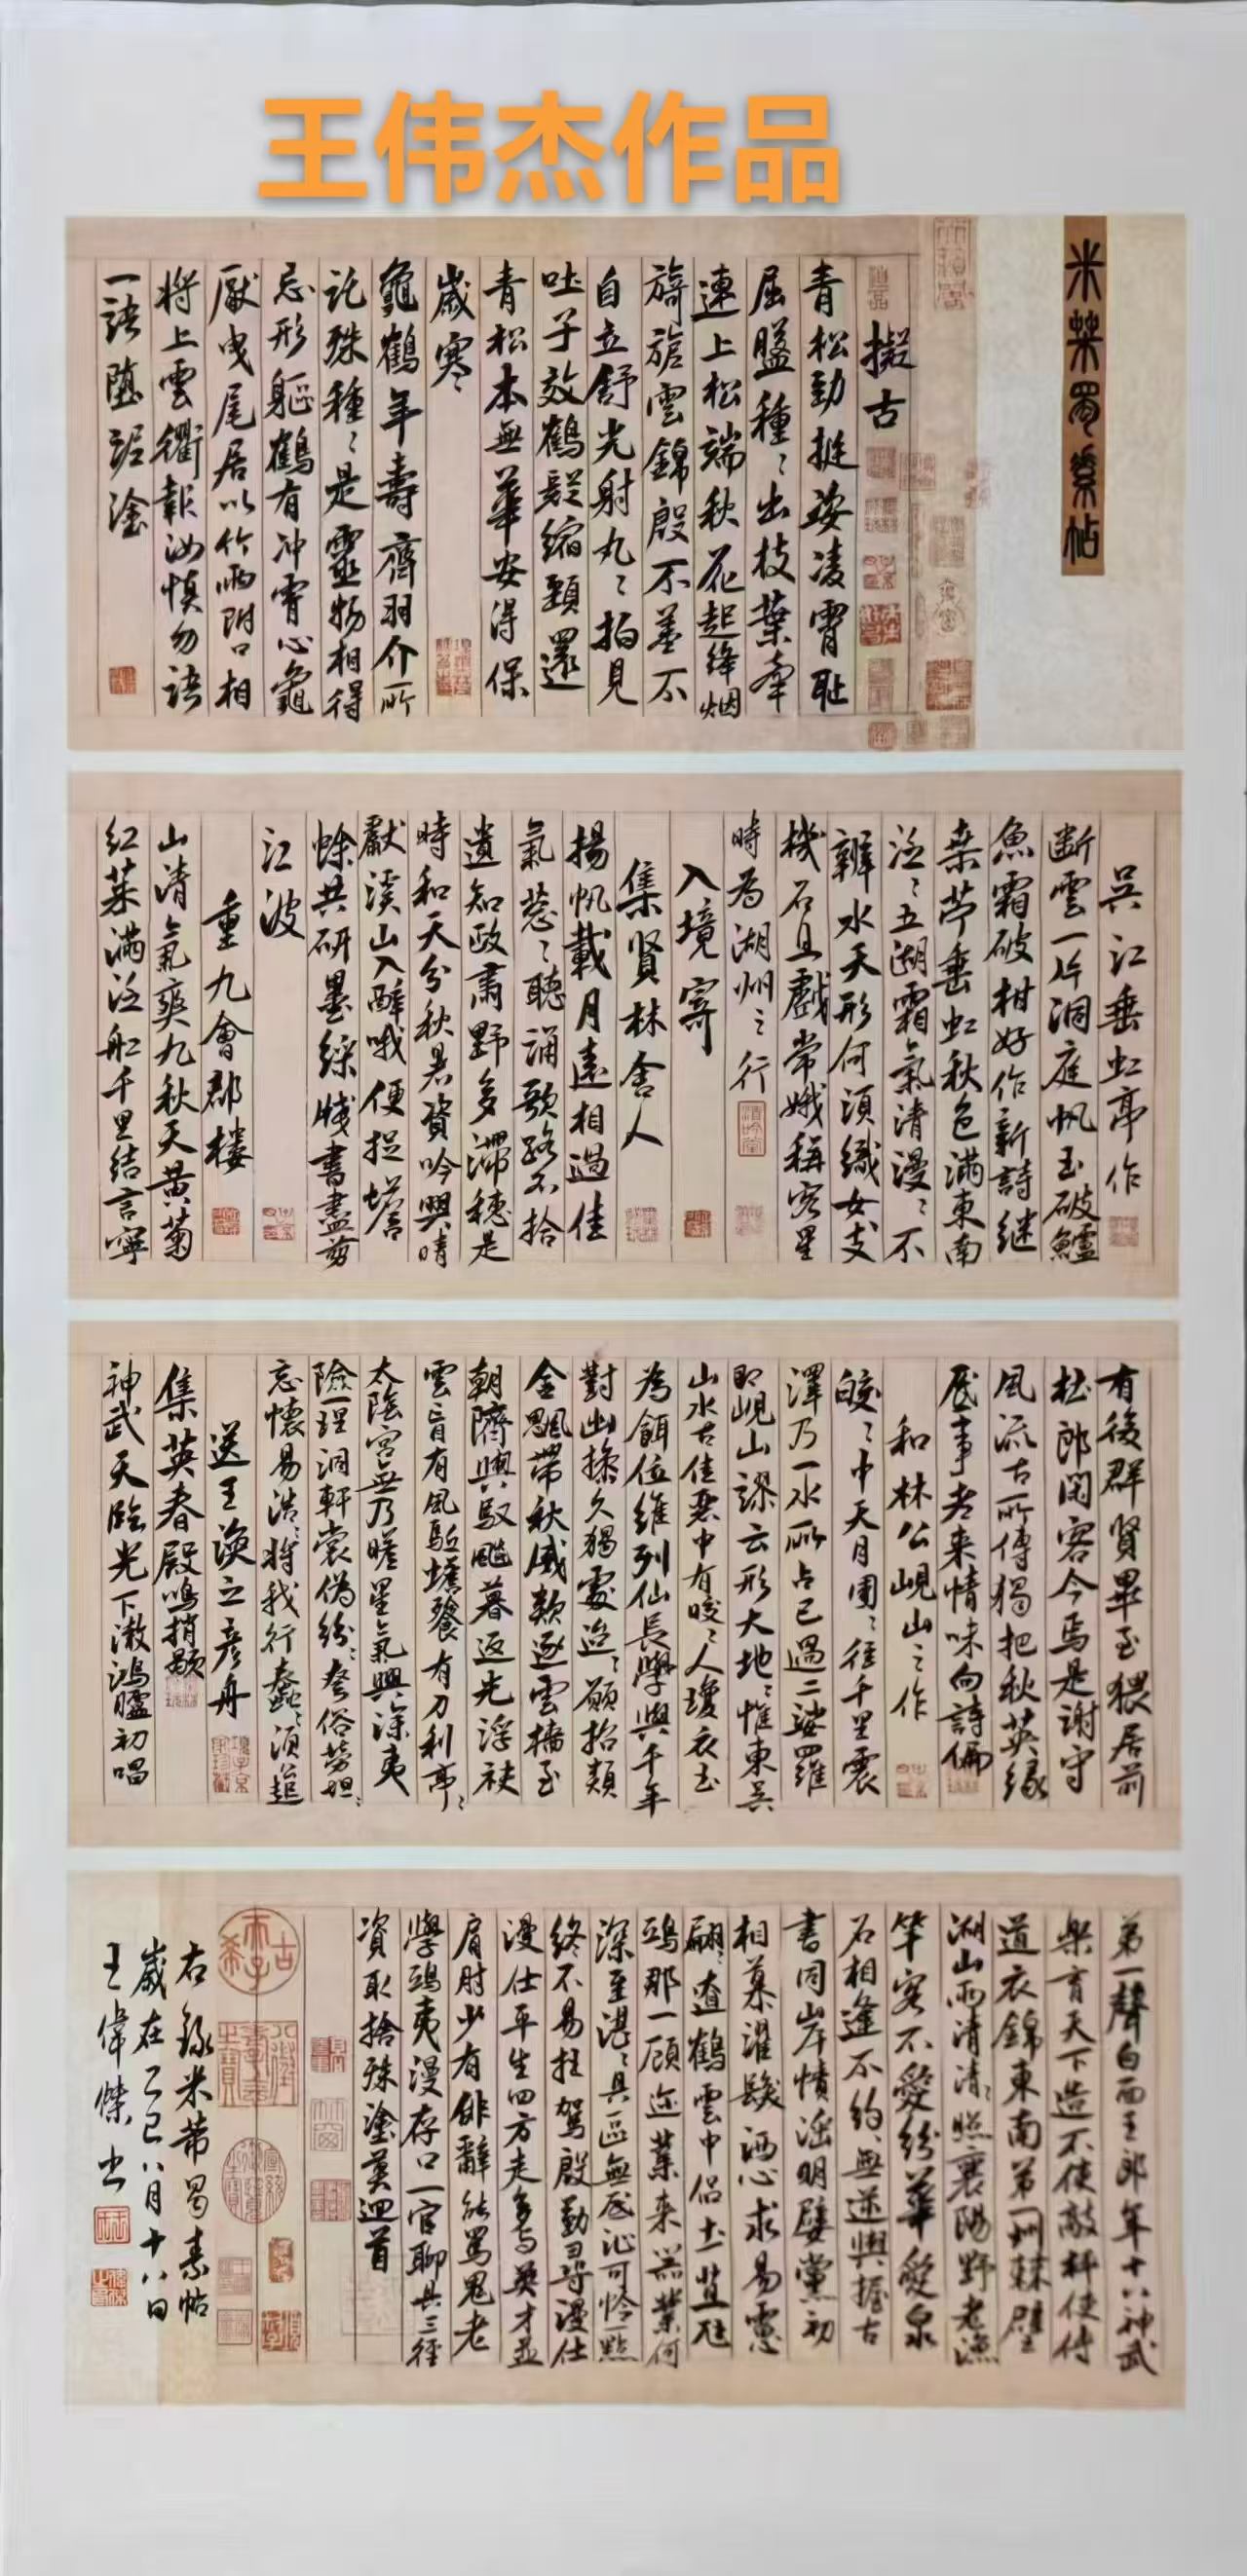 王伟杰作品
米芾蜀素帖
擬古
青松勁挺姿凌霄恥
屈盤種〻出枝葉牽
連上松端秋花起絳烟
旖旎雲錦殷不羞不
自立舒光射丸〻拍見
吐子效鶴疑縮頸還
青松本無華安得保
歲寒
龜鶴年壽齊羽介所
託殊種〻是靈物相得
忘形軀鶴有冲霄心龜
厭曳尾居以竹兩附口相
將上雲衢報汝慎勿語
一語墮泥塗
吳江垂虹亭作
断雲一片洞庭帆玉破鱸
魚霜破柑好作新詩継
桑苧垂虹秋色滿東南
泛〻五湖霜氣清漫〻不
辨水天形何須織女支
機石且戲常娥稱客星
時為湖州之行
入境寄
集賢林舍人
揚帆載月遠相過佳
氣葱〻聽誦歌路不拾
遺知政肅野多滯穗是
時和天分秋暑資吟興晴
獻溪山入醉哦便捉蟾
蜍共研墨綵牋書盡剪
江波
重九會郡樓
山清氣爽九秋天黃菊
紅茱滿泛船千里結言寧
有後群賢畢至猥居前
杜郎閑客今焉是謝守
風流古所傳獨把秋英緣
底事老来情味向詩偏
和林公峴山之作
皎〻中天月團〻徑千里震
澤乃一水所占已過二娑羅
即峴山謬云形大地〻惟東吳
山水古佳麗中有皎〻人瓊衣玉
為餌位維列仙長學與千年
對幽操久獨處迢〻願招類
金飈帶秋威欻逐雲檣至
朝隮輿馭飈暮返光浮袂
雲盲有風驅蟾餮有刀利亭〻
太陰宮無乃瞻星氣興深夷
險一理洞軒裳偽紛〻夸俗勞妲〻
忘懷易浩〻將我行蠢〻須起
送王渙之彥舟
集英春殿鳴捎歇
神武天臨光下澈鴻臚初唱
第一聲白面王郎年十八神武
樂育天下造不使敲枰使傳
道衣錦東南第一州棘璧
湖山兩清清〻照襄陽野老漁
竿客不愛紛華愛泉
石相逢不約〻無逆輿握古
書同岸幘淫朋嬖黨初
相慕濯髮洒心求易慮
翩〻遼鶴雲中侣土苴尫
鴟那一顧迩來器業何
深至湛〻具區無底沚可怜一點
終不易枉駕殷勤尋漫仕
漫仕平生四方走多与英才並
肩肘少有俳辭能罵鬼老
學鴟夷漫存口一官聊具三徑
資取捨殊塗莫迴首
右錄米芾蜀素帖
歲在乙巳八月十八日
王偉傑书